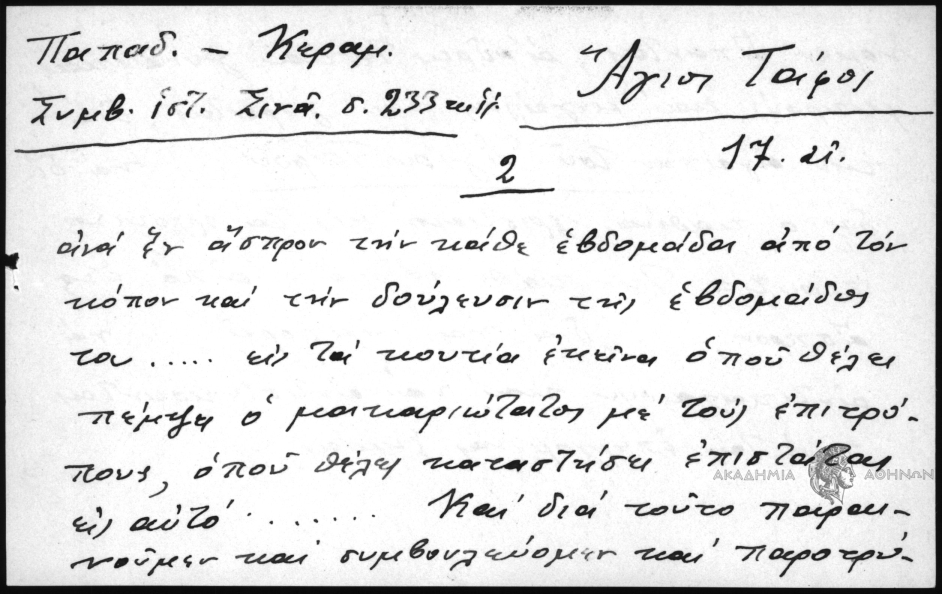 Παπαδ. – Κεραμ.
Συμβ. ἱστ. Σινᾶ. σ. 233 κἑἰ.
Ἅγιος Τάφος
17. αἰ.
2
ἀνά ἓν ἄσπρον τήν κάθε ἑβδομάδα ἀπό τόν
κόπον καί τήν δούλευσιν τῆς ἑβδομάδος
του ..... εἰς τά κουτία ἐκεῖνα ὁποῦ θέλει
πέμψει ὁ μακαριώτατος μέ τούς ἐπιτρό-
πους, ὁποῦ θέλει καταστήσει ἐπιστάτας
εἰς αὐτό ........ Καί διά τοῦτο παρακι-
νοῦμεν καί συμβουλεύομεν καί παροτρύ-
ΑΚΑΔΗΜΙΑ ΑΘΗΝΩΝ